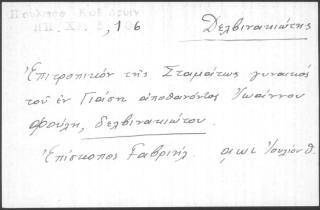 , 1 6
Δελβινακιώτης
Ἐπιτροπικόν τῆς Σταμάτως γυναικός
τοῦ ἐν Γιάσῃ ἀποθανόντος Ἰωάννου
Φούλη, δελβινακιώτου.
Ἐπίσκοπος Γαβριήλ. αωι Ἰουλίου θ.